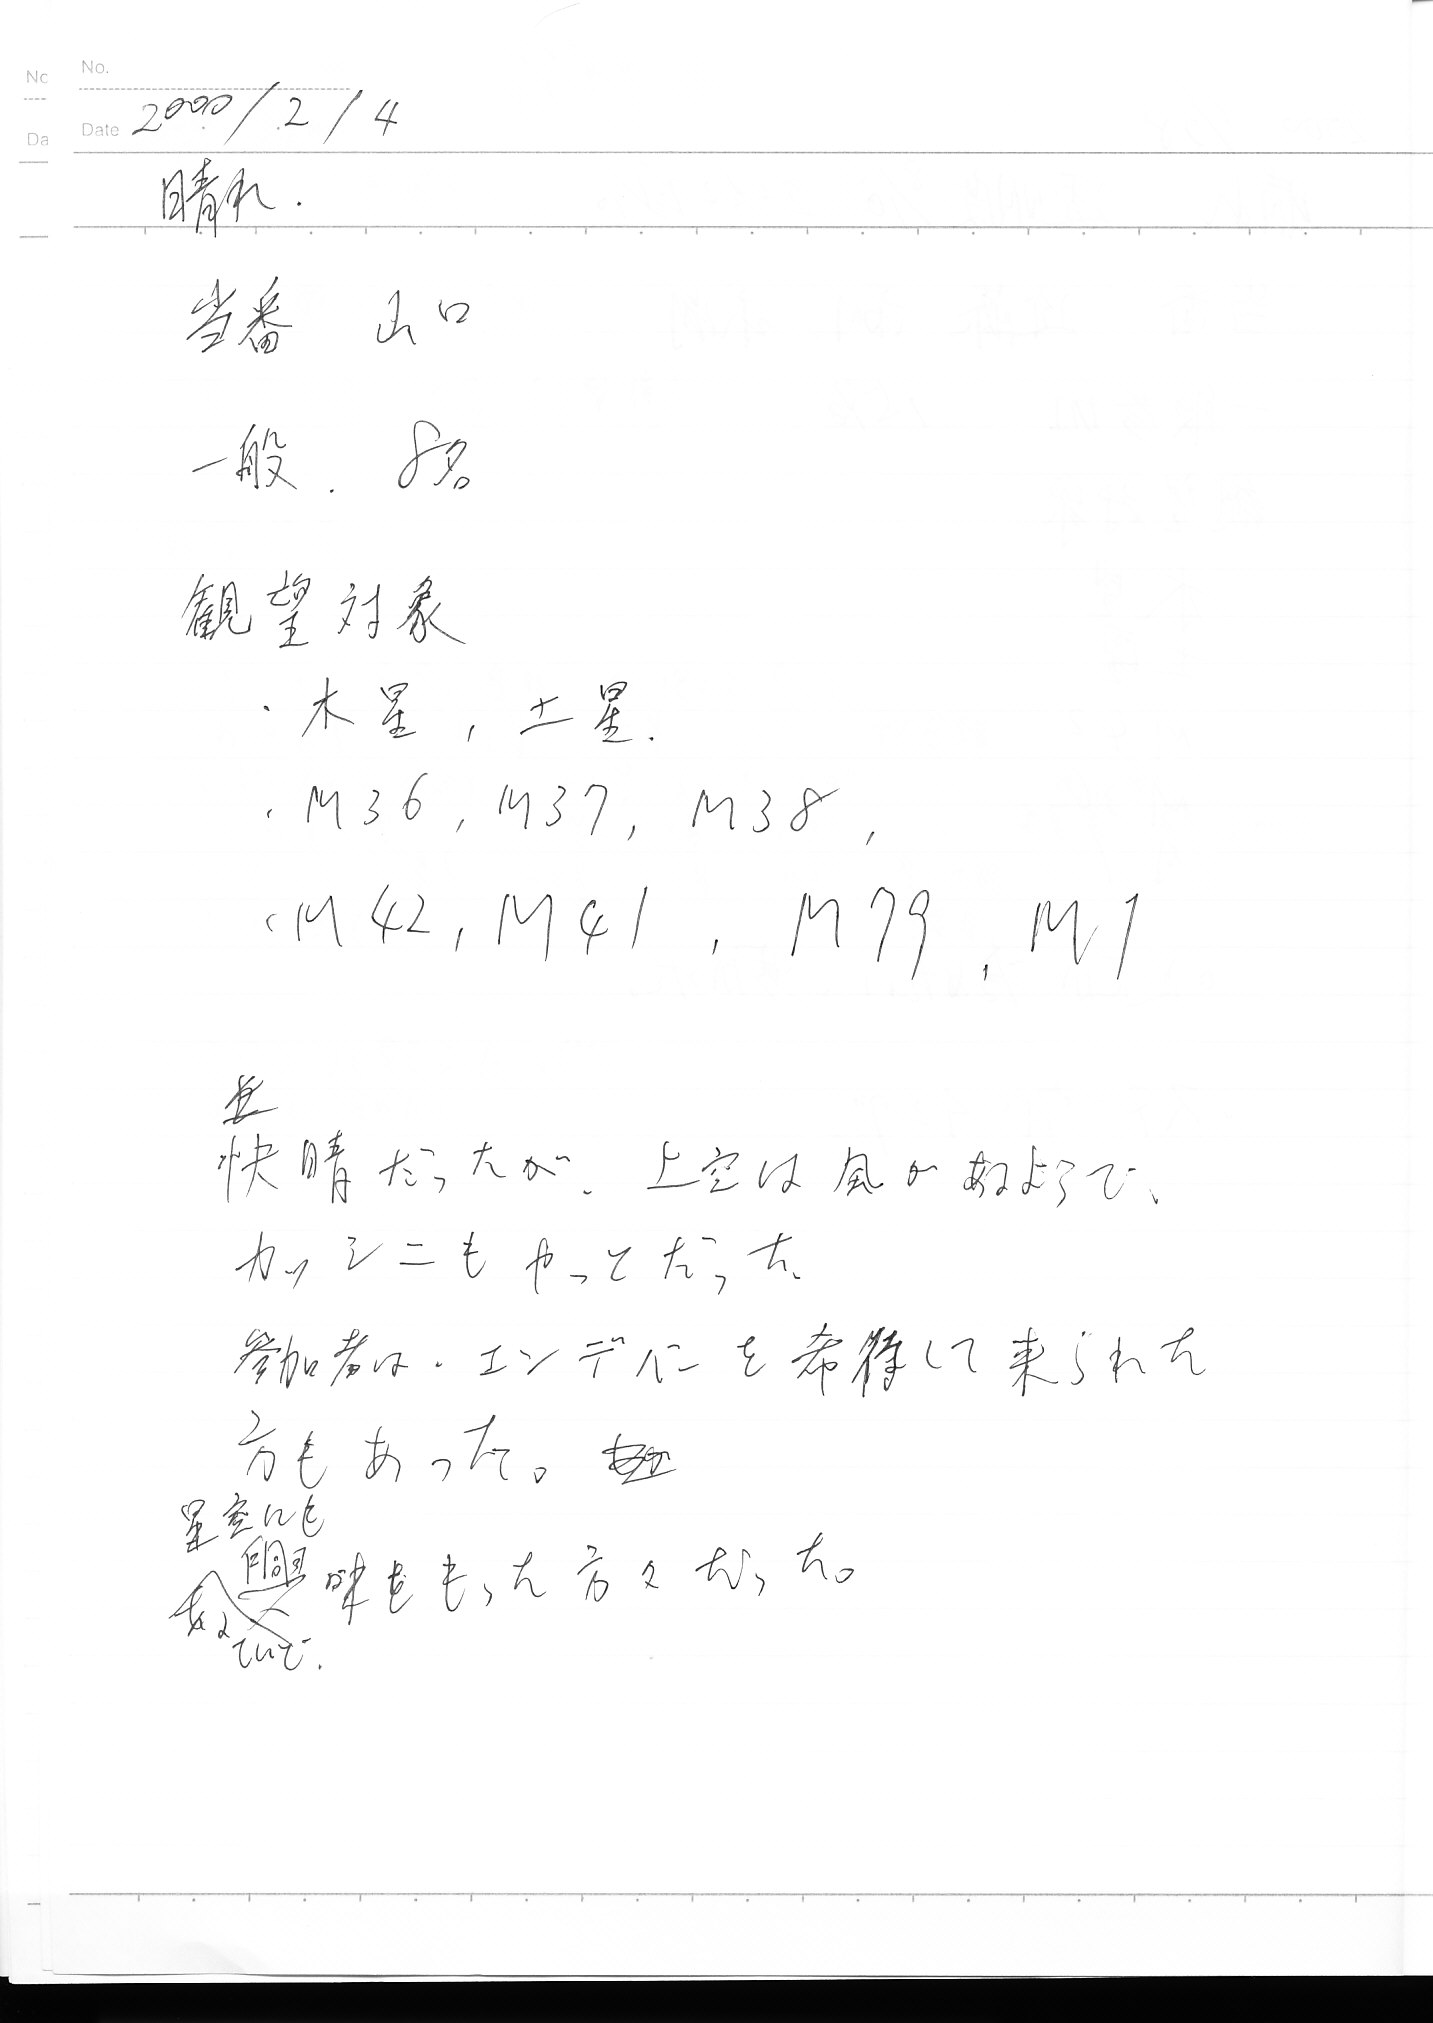 No.
Date 2000/2/4
晴れ.
当番 山口
一般. 8名
観望対象
・木星, 土星.
・M36, M37, M38,
・M42, M41, M79, M1
快晴だったが、上空は風があるようで、
カッシニもやっとだった、
参加者は・エンデバーを希待して来られた
方もあった。
星空にも
興味をもった方々だった。
ていて.
No
Da